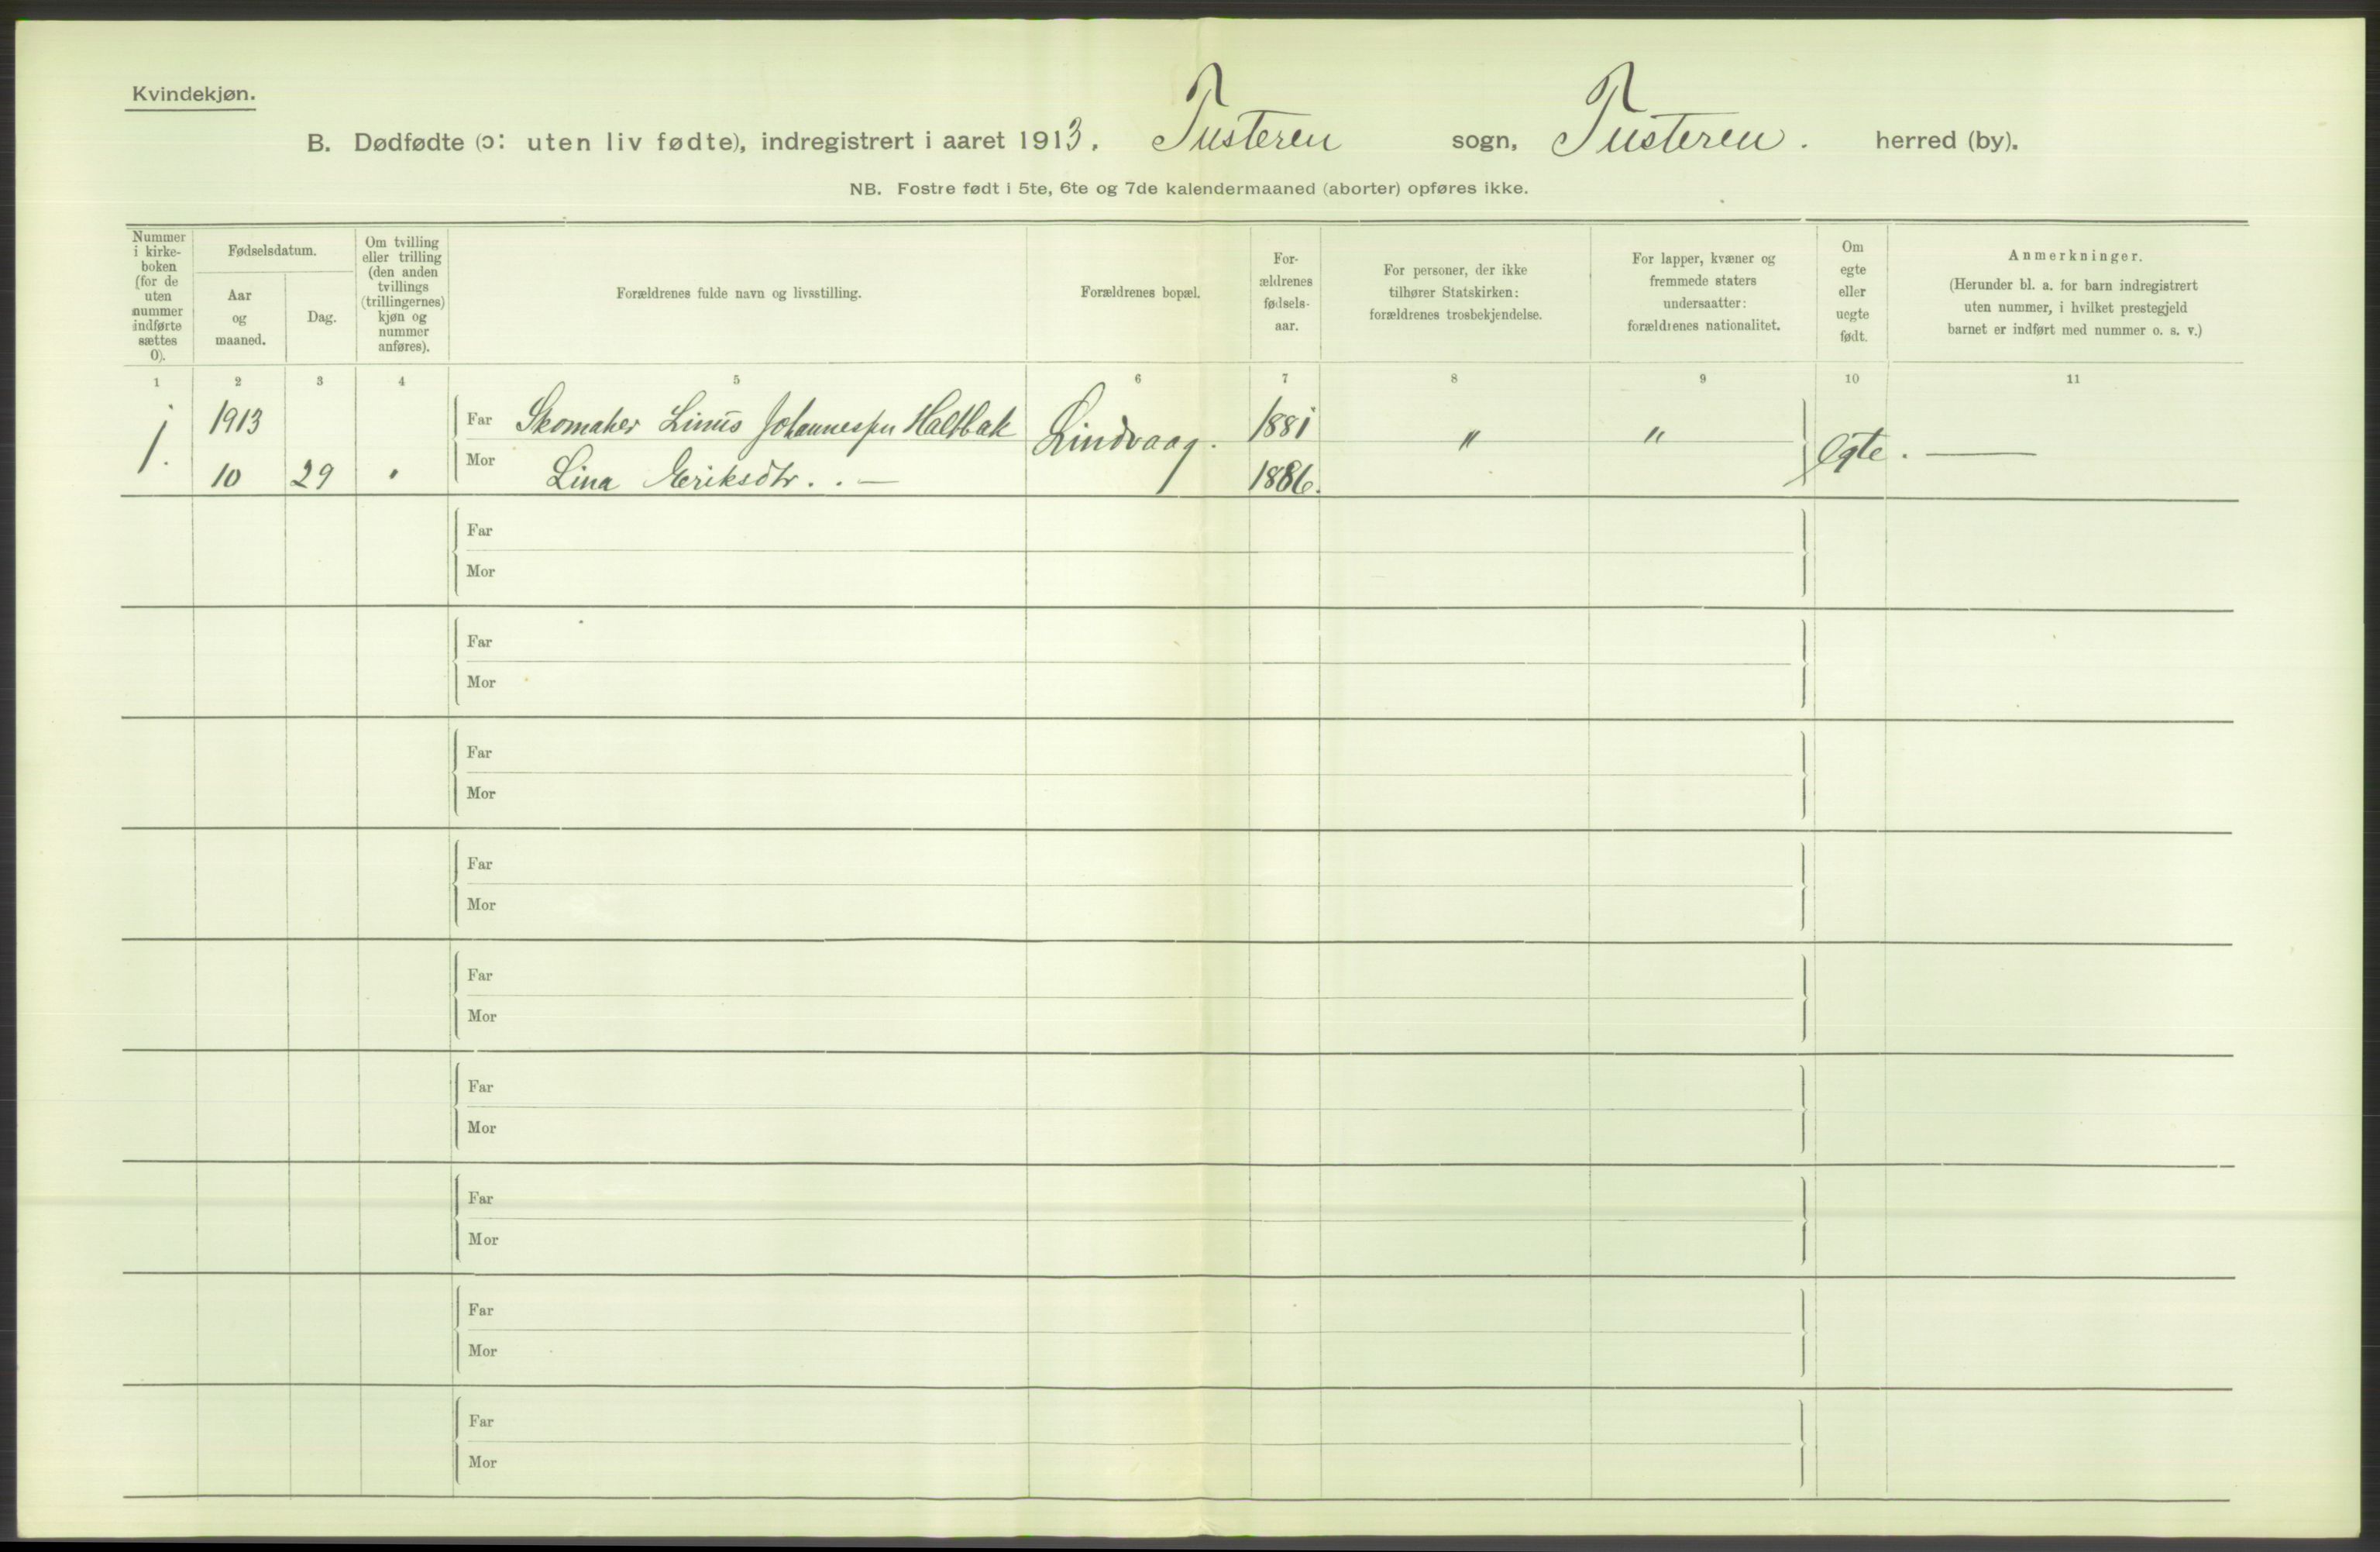 Kvindekjøn.
B. Dødfødte (ɔ: uten liv fødte), indregistrert i aaret 1913. Tusteren sogn, Tusteren. herred (by).
NB. Fostre født i 5te, 6te og 7de kalendermaaned (aborter) opføres ikke.
Nummer
i kirke-
boken
(for de
uten
nummer
indførte
sættes
0).
Fødselsdatum.
Aar
og
maaned.
Dag.
Om tvilling
eller trilling
(den anden
tvillings
(trillingernes)
kjøn og
nummer
anføres).
Forældrenes fulde navn og livsstilling.
Forældrenes bopæl.
For-
ældrenes
fødsels-
aar.
For personer, der ikke
tilhører Statskirken:
forældrenes trosbekjendelse.
For lapper, kvæner og
fremmede staters
undersaatter:
forældrenes nationalitet.
Om
egte
eller
uegte
født.
Anmerkninger.
(Herunder bl. a. for barn indregistrert
uten nummer, i hvilket prestegjeld
barnet er indført med nummer o. s. v.)
1 2 3 4 5 6 7 8 9 10 11
1. 1913 Far Skomaker Linus Johannessen Haltbak Lindvaag. 1881 " " Egte. —
10 29 " Mor Lina Eriksdtr. . — 1886.
Far
Mor
Far
Mor
Far
Mor
Far
Mor
Far
Mor
Far
Mor
Far
Mor
Far
Mor
Far
Mor